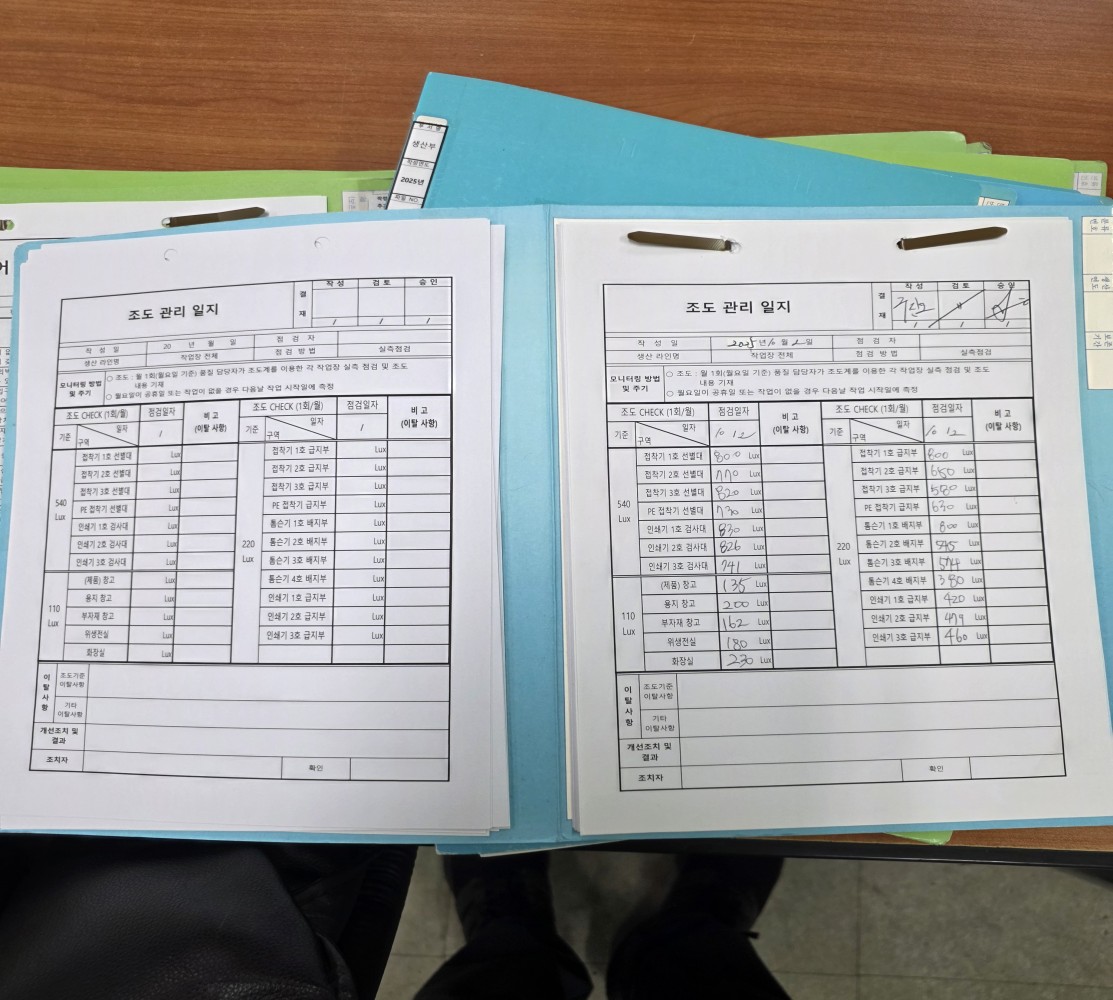 생산부
2025년
조도 관리 일지
결 재
작 성
검 토
승 인
/ / /
작 성 일
20 년 월 일
점 검 자
생산 라인명
작업장 전체
점 검 방 법
실측점검
모니터링 방법 및 주기
○ 조도 : 월 1회(월요일 기준) 품질 담당자가 조도계를 이용한 각 작업장 실측 점검 및 조도
내용 기재
○ 월요일이 공휴일 또는 작업이 없을 경우 다음날 작업 시작일에 측정
조도 CHECK (1회/월) 점검일자 비 고 (이탈 사항) 조도 CHECK (1회/월) 점검일자 비 고 (이탈 사항)
기준 일자 구역 / 기준 일자 구역 /
540 Lux
접착기 1호 선별대 Lux
접착기 2호 선별대 Lux
접착기 3호 선별대 Lux
PE 접착기 선별대 Lux
인쇄기 1호 검사대 Lux
인쇄기 2호 검사대 Lux
인쇄기 3호 검사대 Lux
110 Lux
(제품) 창고 Lux
용지 창고 Lux
부자재 창고 Lux
위생전실 Lux
화장실 Lux
220 Lux
접착기 1호 급지부 Lux
접착기 2호 급지부 Lux
접착기 3호 급지부 Lux
PE 접착기 급지부 Lux
톰슨기 1호 배지부 Lux
톰슨기 2호 배지부 Lux
톰슨기 3호 배지부 Lux
톰슨기 4호 배지부 Lux
인쇄기 1호 급지부 Lux
인쇄기 2호 급지부 Lux
인쇄기 3호 급지부 Lux
이 탈 사 항
조도기준 이탈사항
기타 이탈사항
개선조치 및 결과
조치자
확인
조도 관리 일지
결 재
작 성
검 토
승 인
/ / /
작 성 일
2025 년 10 월 2 일
점 검 자
생산 라인명
작업장 전체
점 검 방 법
실측점검
모니터링 방법 및 주기
○ 조도 : 월 1회(월요일 기준) 품질 담당자가 조도계를 이용한 각 작업장 실측 점검 및 조도
내용 기재
○ 월요일이 공휴일 또는 작업이 없을 경우 다음날 작업 시작일에 측정
조도 CHECK (1회/월) 점검일자 비 고 (이탈 사항) 조도 CHECK (1회/월) 점검일자 비 고 (이탈 사항)
기준 일자 구역 10 / 2 기준 일자 구역 10 / 2
540 Lux
접착기 1호 선별대 800 Lux
접착기 2호 선별대 770 Lux
접착기 3호 선별대 820 Lux
PE 접착기 선별대 730 Lux
인쇄기 1호 검사대 830 Lux
인쇄기 2호 검사대 826 Lux
인쇄기 3호 검사대 741 Lux
110 Lux
(제품) 창고 135 Lux
용지 창고 200 Lux
부자재 창고 162 Lux
위생전실 180 Lux
화장실 230 Lux
220 Lux
접착기 1호 급지부 800 Lux
접착기 2호 급지부 650 Lux
접착기 3호 급지부 580 Lux
PE 접착기 급지부 630 Lux
톰슨기 1호 배지부 800 Lux
톰슨기 2호 배지부 545 Lux
톰슨기 3호 배지부 574 Lux
톰슨기 4호 배지부 380 Lux
인쇄기 1호 급지부 420 Lux
인쇄기 2호 급지부 479 Lux
인쇄기 3호 급지부 460 Lux
이 탈 사 항
조도기준 이탈사항
기타 이탈사항
개선조치 및 결과
조치자
확인